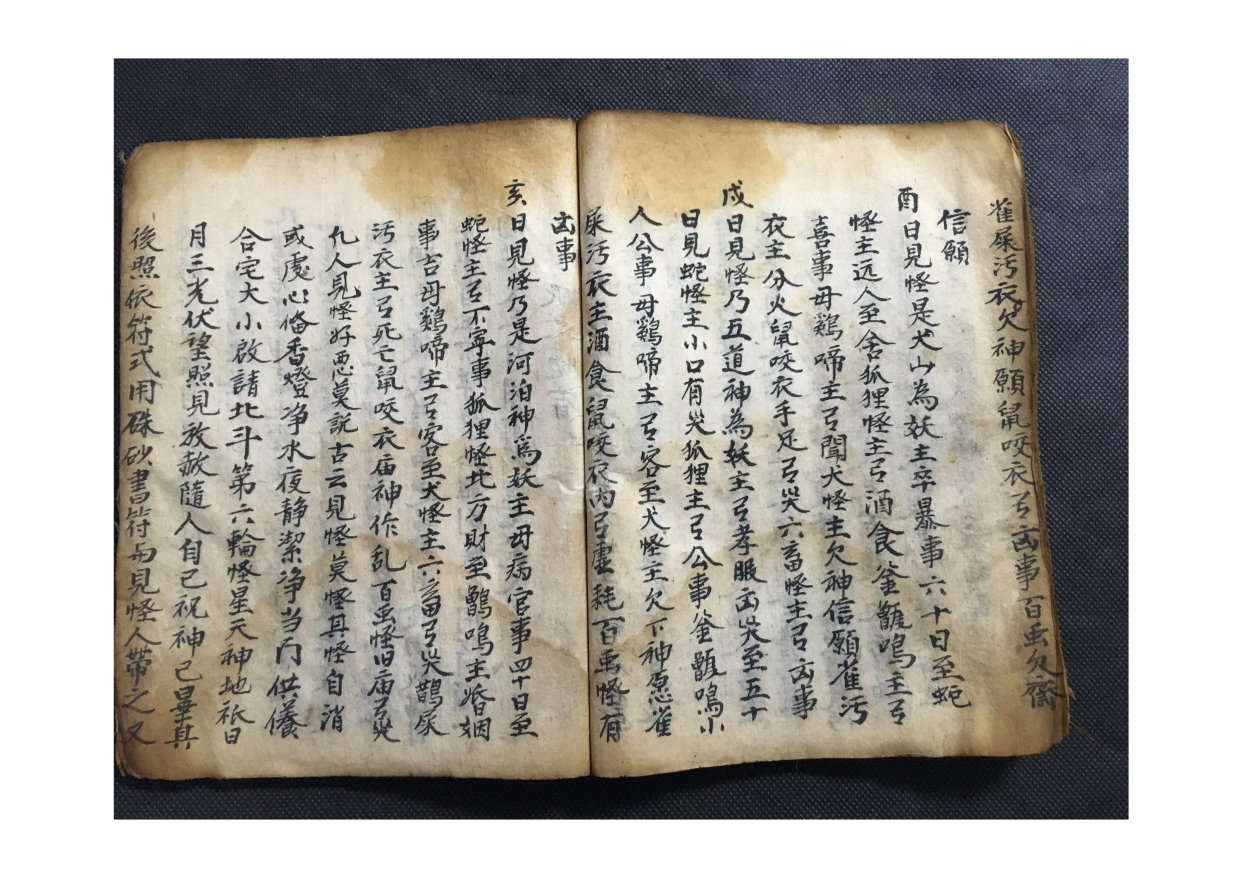 雀屎汚衣欠神願鼠咬衣弓凶事百虫欠齋
信願
酉日見怪是犬山為妖主卒暴事六十日至蛇
怪主远人至舍狐狸怪主弓酒食釜甑鳴主弓
喜事母鷄啼主弓聞犬怪主欠神信願雀汚
衣主分火鼠咬衣手足弓災六畜怪主弓凶事
戌日見怪乃五道神為妖主弓孝服凶災至五十
日見蛇怪主小口有災狐狸主弓公事釜甑鳴小
人公事母鷄啼主弓客至犬怪主欠下神愿雀
屎汚衣主酒食鼠咬衣內弓虛耗百虫怪有
凶事
亥日見怪乃是河泊神爲妖主母病官事四十日至
蛇怪主弓不寧事狐狸怪北方財至鸛鳴主婚姻
事吉母鷄啼主弓客至犬怪主六畜弓災鵲屎
汚衣主弓死亡鼠咬衣庙神作乱百虫怪旧庙弓災
凢人見怪好恶莫説古云見怪莫怪其怪自消
或虔心俻香燈净水夜静潔净当门供養
合宅大小啟請北斗第六輪怪星天神地祇日
月三光伏望照見放赦隨人自己祝神已畢其
後照依符式用硃砂書符与見怪人帶之又